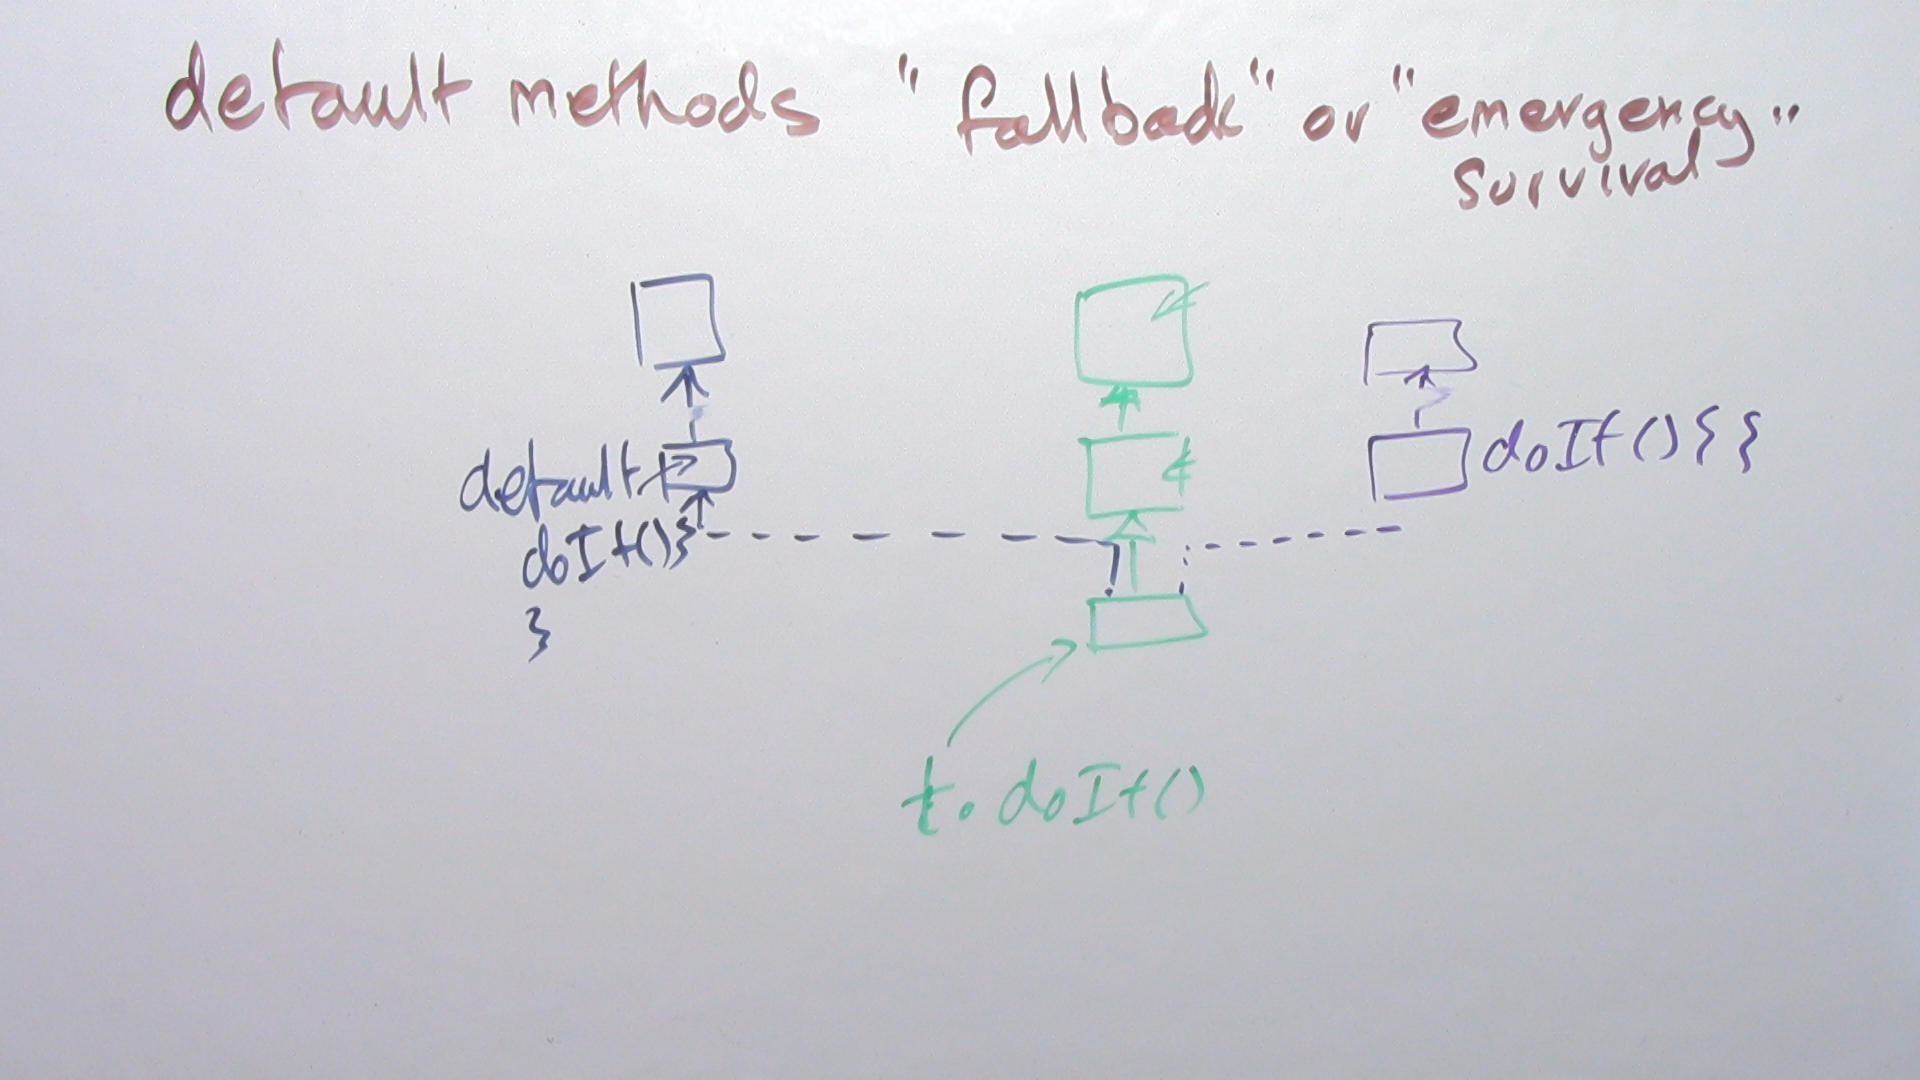 default methods "fallback" or "emergency"
survival
default
doIt(){
}
doIt(){}
t.doIt()